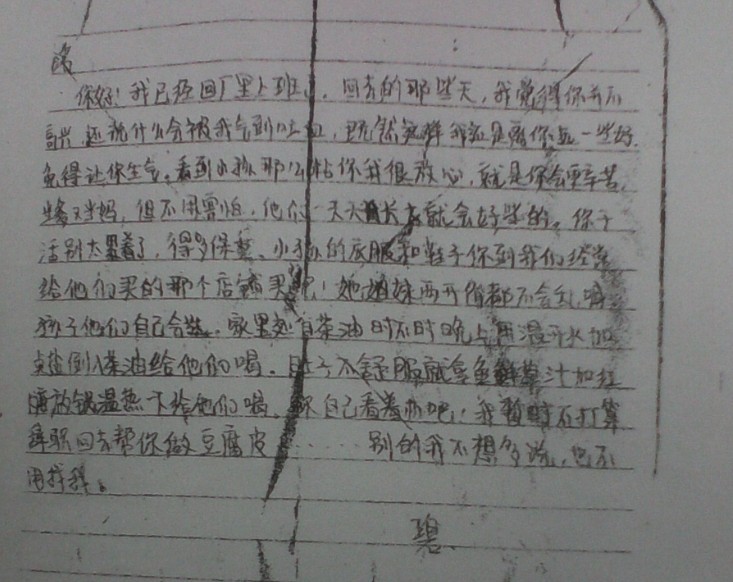 你好!我已经回厂里上班,回去的那些天,我觉得你并不
高兴,还说什么会被我气到吐血,既然这样我还是离你远一些好,
免得让你生气。看到小孩那么粘你我很放心,就是你会更辛苦,
当爸又当妈,但不用害怕,他们一天天长大就会好些的。你干
活别太累着了,得多保重。小孩的衣服和鞋子你到我们经常
给他们买的那个店铺买吧!她姐妹两开销都不会乱,
孩子他们自己会,家里还有茶油时不时晚上用温开水加
点盐倒入茶油给他们喝。肚子不舒服就拿鱼鲜草汁加红
糖放锅温热下给他们喝,你自己看着办吧!我暂时不打算
辞职回去帮你做豆腐皮 别的我不想多说,也不
用找我。
碧